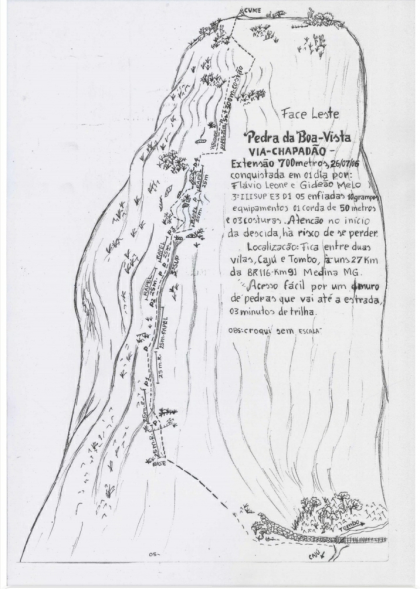 CUME
Face Leste
"Pedra da Boa-Vista
VIA-CHAPADÃO-
Extensão 700metros, 26/07/06
conquistada em 01 dia por:
Flávio Leone e Gideão Melo
3º IIISUP E3 D1 05 enfiadas
equipamentos 01 corda de 50 metros
e 03 costuras. Atencão no início
da descida, há risco de se perder
Localização: Fica entre duas
vilas, Cajú e Tombo, à uns 27 Km
da BR116-Km91 Medina MG.
Acesso fácil por um muro
de pedras que vai até a estrada,
03 minutos de trilha.
OBS: croqui sem ESCALA
BASE
Tombo
CAJÚ